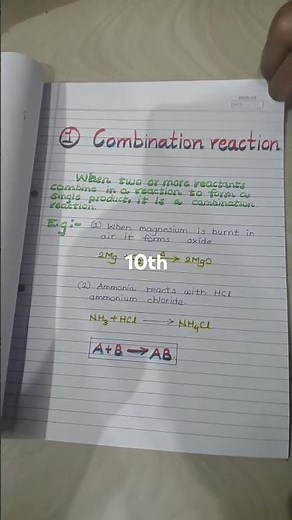 ① Combination reaction
When two or more reactants
combine in a reaction to form a
single product, it is a combination
reaction.
E.g:- (1) When magnesium is burnt in
air it forms oxide
2Mg → 2MgO
10th
(2) Ammonia reacts with HCl
ammonium chloride.
NH₃ + HCl → NH₄Cl
A+B → AB